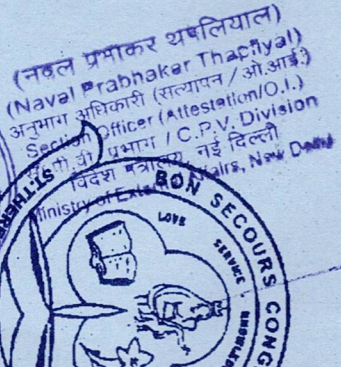 (नवल प्रभाकर थपलियाल)
(Naval Prabhakar Thapliyal)
अनुभाग अधिकारी (सत्यापन / ओ.आई.)
Section Officer (Attestation/O.I.)
सी.पी.वी. प्रभाग / C.P.V. Division
विदेश मंत्रालय, नई दिल्ली
Ministry of External Affairs, New Delhi
ST.THER
BON SECOURS CONG
LOVE
SERVICE